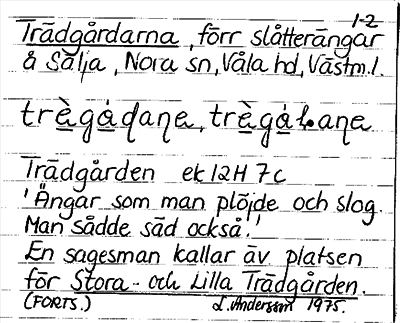 1-2
Trädgårdarna, förr slåtterängar
å Sälja, Nora sn, Våla hd, Västm.l.
Trädgården ek 12H 7c
'Ängar som man plöjde och slog.
Man sådde säd också.'
En sagesman kallar äv platsen
för Stora- och Lilla Trädgården.
(FORTS.) L. Andersson 1975.